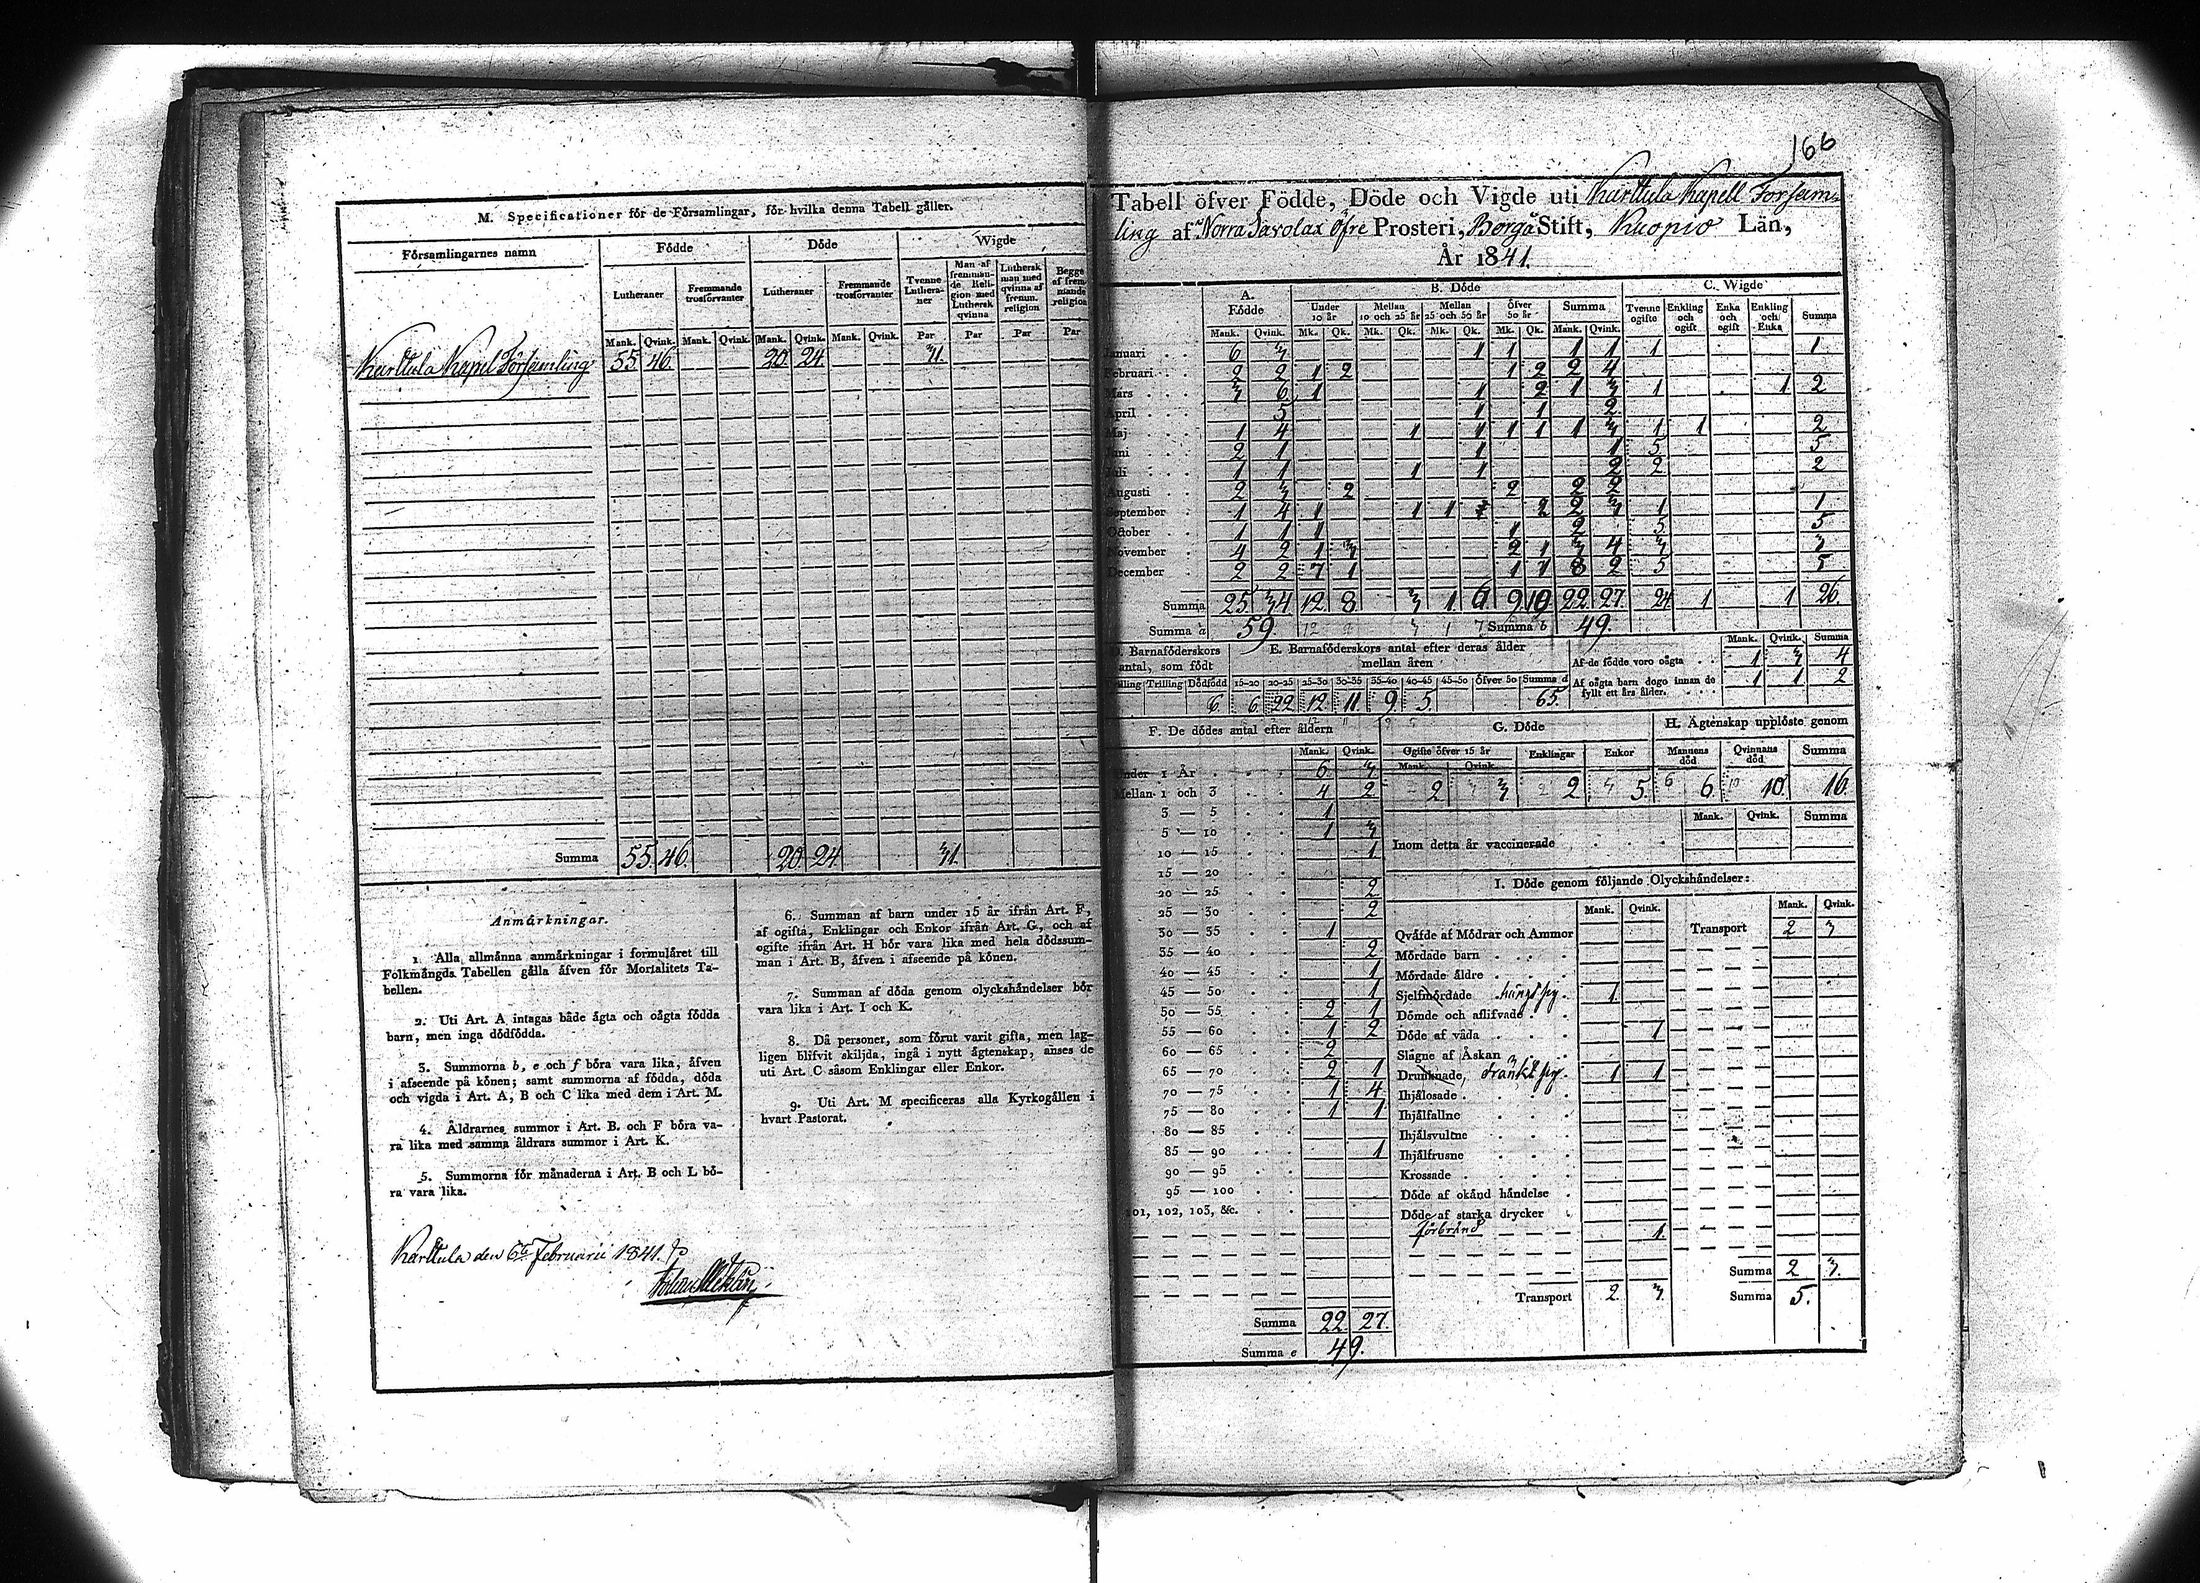 M. Specificationer för de Församlingar, för hvilka denna Tabell gäller.
Församlingarnes namn Födde Döde Wigde
Lutheraner Fremmande trosförvanter Lutheraner Fremmande trosförvanter Tvenne Lutheraner Man af fremmande Religion med Luthersk qvinna Luthersk man med qvinna af fremm. religion Begge af fremmande religion
Mank. Qvink. Mank. Qvink. Mank. Qvink. Mank. Qvink. Par Par Par Par
Karttula Kapel Församling 55 46 20 24 31
Summa 55. 46. 20 24 31.
Anmärkningar.
1. Alla allmänna anmärkningar i formuläret till
Folkmängds Tabellen gälla äfven för Mortalitets Ta-
bellen.
2. Uti Art. A intagas både ägta och oägta födda
barn, men inga dödfödda.
3. Summorna b, e och f böra vara lika, äfven
i afseende på könen; samt summorna af födda, döda
och vigda i Art. A, B och C lika med dem i Art. M.
4. Åldrarnes summor i Art. B. och F böra va-
ra lika med samma åldrars summor i Art. K.
5. Summorna för månaderna i Art. B och L bö-
ra vara lika.
6. Summan af barn under 15 år ifrån Art. F,
af ogifta, Enklingar och Enkor ifrån Art. G., och af
ogifte ifrån Art. H bör vara lika med hela dödssum-
man i Art. B, äfven i afseende på könen.
7. Summan af döda genom olyckshändelser bör
vara lika i Art. I och K.
8. Då personer, som förut varit gifta, men lag-
ligen blifvit skiljda, ingå i nytt ägtenskap, anses de
uti Art. C såsom Enklingar eller Enkor.
9. Uti Art. M specificeras alla Kyrkogällen i
hvart Pastorat.
Karttula den 6te Februarii 1841.
166
Tabell öfver Födde, Döde och Vigde uti Karttula Kapell Försam-
ling af Norra Savolax Öfre Prosteri, Borgå Stift, Kuopio Län,
År 1841.
A. Födde B. Döde C. Wigde
Under 10 år Mellan 10 och 25 år Mellan 25 och 50 år Öfver 50 år Summa Tvenne ogifte Enkling och ogift Enka och ogift Enkling och Enka Summa
Mank. Qvink. Mk. Qk. Mk. Qk. Mk. Qk. Mk. Qk. Mank. Qvink.
Januari 6 3 1 1 1 1 1 1
Februari 2 2 1 2 1 2 2 4
Mars 3 6 1 1 2 1 3 1 1 2
April 5 1 1 2
Maj 1 4 1 1 1 1 1 3 1 1 2
Juni 2 1 1 1 5 5
Juli 1 1 1 1 2 2 2
Augusti 2 3 2 2 2 2
September 1 4 1 1 1 2 2 3 1 1
October 1 1 1 1 2 5 5
November 4 2 1 3 2 1 3 4 3 3
December 2 2 7 1 1 1 8 2 5 5
Summa 25 34 12 8 3 1 6 9 10 22 27. 24 1 1 26.
Summa a 59. Summa b 49.
D. Barnaföderskors antal, som födt E. Barnaföderskors antal efter deras ålder mellan åren
Mank. Qvink. Summa
Af de födde voro oägta 1 3 4
Af oägta barn dogo innan de fyllt ett års ålder. 1 1 2
Tvilling Trilling Dödfödd 15-20 20-25 25-30 30-35 35-40 40-45 45-50 Öfver 50 Summa d
6 6 22 12 11 9 5 65.
F. De dödes antal efter åldern
Mank. Qvink.
Under 1 År 6 3
Mellan 1 och 3 4 2
3 — 5 1
5 — 10 1 3
10 — 15 1
15 — 20
20 — 25 2
25 — 30 2
30 — 35 1
35 — 40 2
40 — 45 1
45 — 50 1
50 — 55 2 1
55 — 60 1 2
60 — 65 2
65 — 70 2 1
70 — 75 1 4
75 — 80 1 1
80 — 85
85 — 90 1
90 — 95
95 — 100
101, 102, 103, &c.
Summa 22 27.
Summa e 49.
G. Döde H. Ägtenskap upplöste genom
Ogifte öfver 15 år Enklingar Enkor Mannens död Qvinnans död Summa
Mank. Qvink.
2 3 2 5. 6 10. 16.
Mank. Qvink. Summa
Inom detta år vaccinerade
I. Döde genom följande Olyckshändelser:
Mank. Qvink. Mank. Qvink.
Qväfde af Mödrar och Ammor Transport 2 3
Mördade barn
Mördade äldre
Sjelfmördade hängt sig. 1
Dömde och aflifvade
Döde af våda 1
Slagne af Åskan
Drunknade, dränkt sig. 1 1
Ihjälosade
Ihjälfallne
Ihjälsvultne
Ihjälfrusne
Krossade
Döde af okänd händelse
Döde af starka drycker
förbränd 1.
Summa 2 3.
Transport 2. 3. Summa 5.